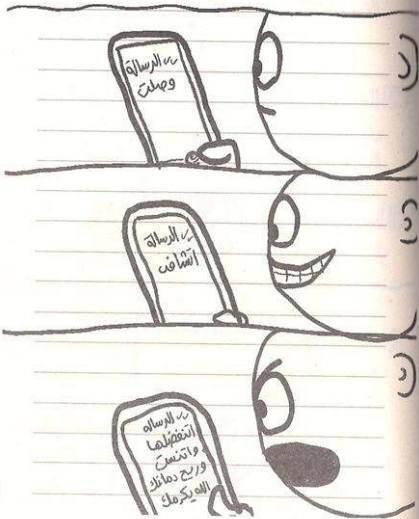 الرسالة
وصلت
الرسالة
اتشافت
الرساله
اتنفضلها
واتنست
وريح دماغك
الله يكرمك